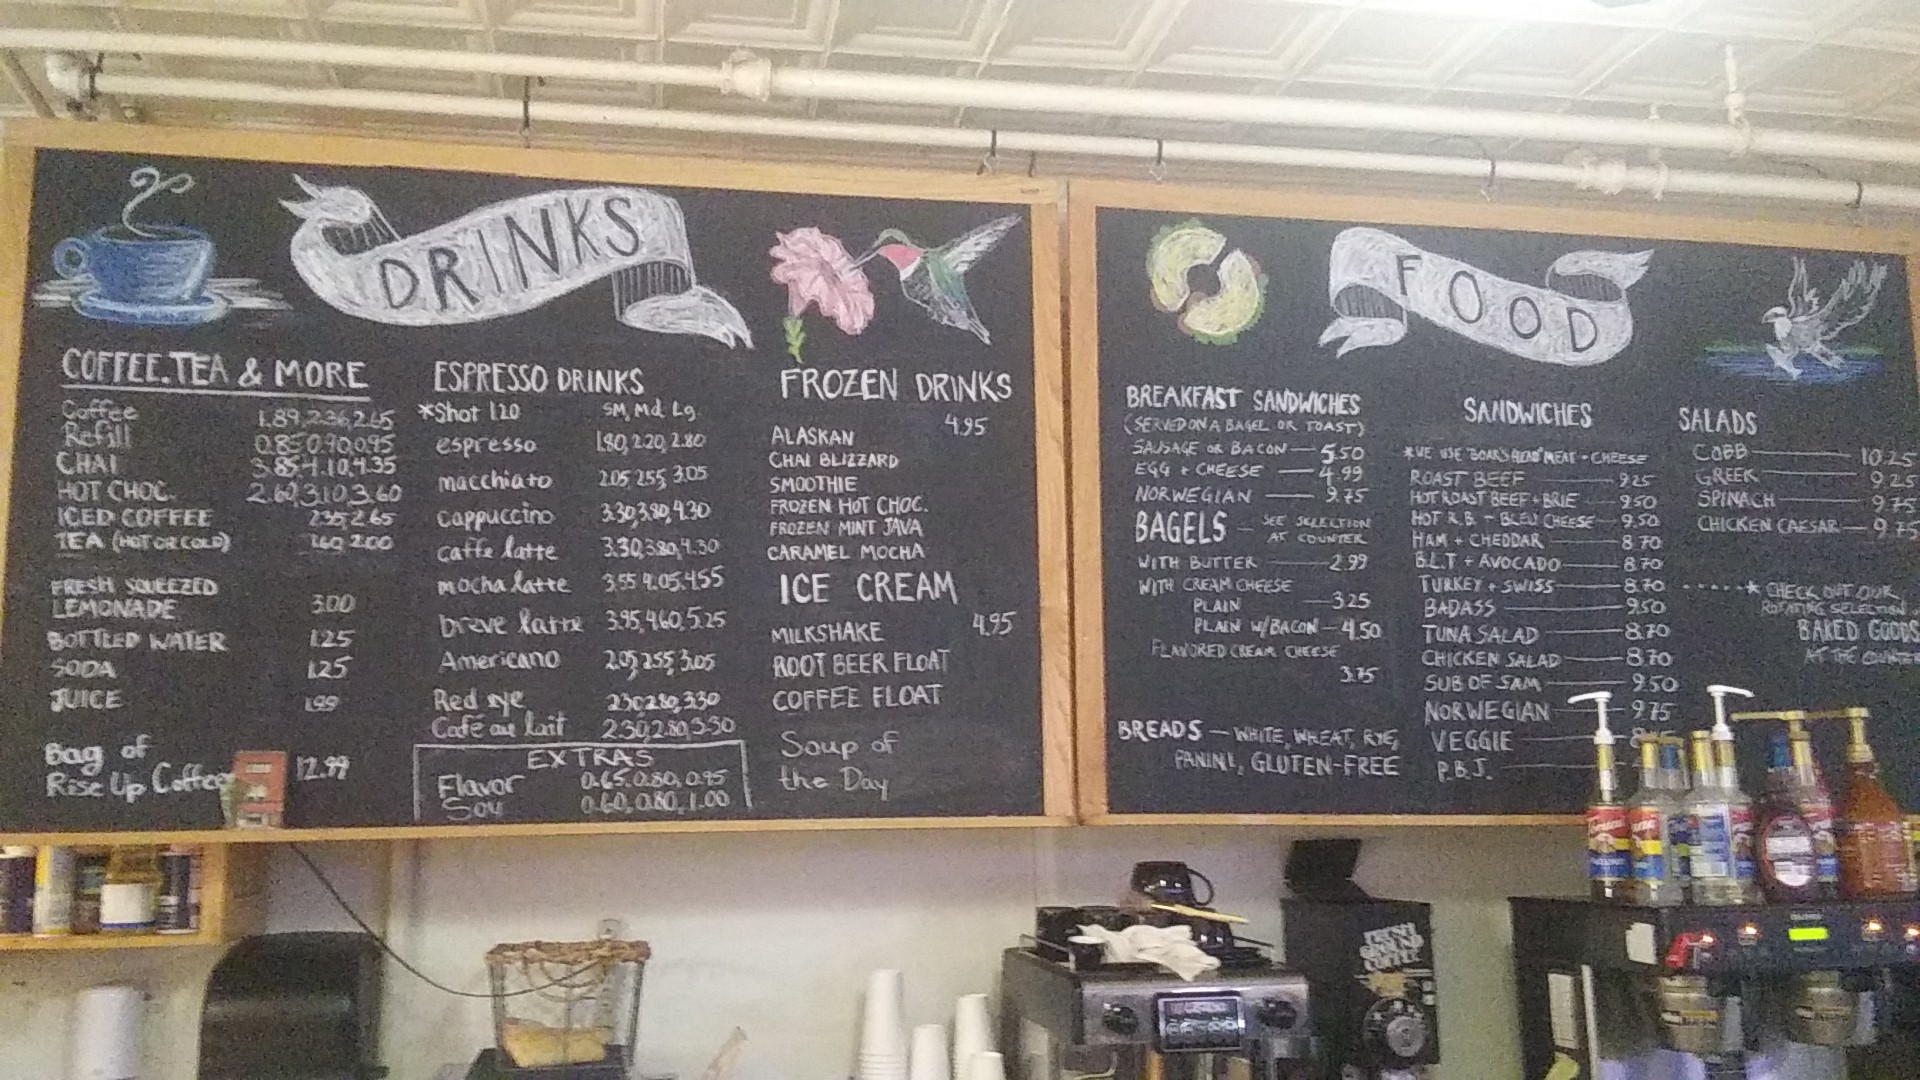 DRINKS
COFFEE.TEA & MORE
Coffee 1.89, 2.36, 2.65
Refill 0.85 0.90, 0.95
CHAI 3.85 4.10, 4.35
HOT CHOC. 2.60, 3.10, 3.60
ICED COFFEE 2.35, 2.65
TEA (HOT OR COLD) 1.60 2.00
FRESH SQUEEZED
LEMONADE 3.00
BOTTLED WATER 1.25
SODA 1.25
JUICE 1.99
Bag of
Rise Up Coffee 12.99
ESPRESSO DRINKS
*Shot 1.20 SM, Md, Lg.
espresso 1.80, 2.20, 2.80
macchiato 2.05 2.55 3.05
Cappuccino 3.30, 3.80, 4.30
caffe latte 3.30, 3.80, 4.30
mocha latte 3.55 4.05, 4.55
breve latte 3.95, 4.60, 5.25
Americano 2.05 2.55, 3.05
Red eye 2.30 2.80, 3.30
Café au lait 2.30, 2.80, 3.30
EXTRAS
Flavor 0.65, 0.80, 0.95
Soy 0.60, 0.80, 1.00
FROZEN DRINKS
4.95
ALASKAN
CHAI BLIZZARD
SMOOTHIE
FROZEN HOT CHOC.
FROZEN MINT JAVA
CARAMEL MOCHA
ICE CREAM
MILKSHAKE 4.95
ROOT BEER FLOAT
COFFEE FLOAT
Soup of
the Day
FOOD
BREAKFAST SANDWICHES
(SERVED ON A BAGEL OR TOAST)
SAUSAGE OR BACON — 5.50
EGG + CHEESE — 4.99
NORWEGIAN — 9.75
BAGELS — SEE SELECTION
AT COUNTER
WITH BUTTER — 2.99
WITH CREAM CHEESE
PLAIN — 3.25
PLAIN W/BACON — 4.50
FLAVORED CREAM CHEESE
3.75
BREADS — WHITE, WHEAT, RYE,
PANINI, GLUTEN-FREE
SANDWICHES
*WE USE "BOAR'S HEAD" MEAT + CHEESE
ROAST BEEF — 9.25
HOT ROAST BEEF + BRIE — 9.50
HOT R.B. + BLEU CHEESE — 9.50
HAM + CHEDDAR — 8.70
B.L.T + AVOCADO — 8.70
TURKEY + SWISS — 8.70
BADASS — 9.50
TUNA SALAD — 8.70
CHICKEN SALAD — 8.70
SUB OF SAM — 9.50
NORWEGIAN — 9.75
VEGGIE —
P.B.J. —
SALADS
COBB — 10.25
GREEK — 9.25
SPINACH — 9.75
CHICKEN CAESAR — 9.75
* CHECK OUT OUR
ROTATING SELECTION
BAKED GOODS
AT THE COUNTER
FRESH
GROUND
COFFEE